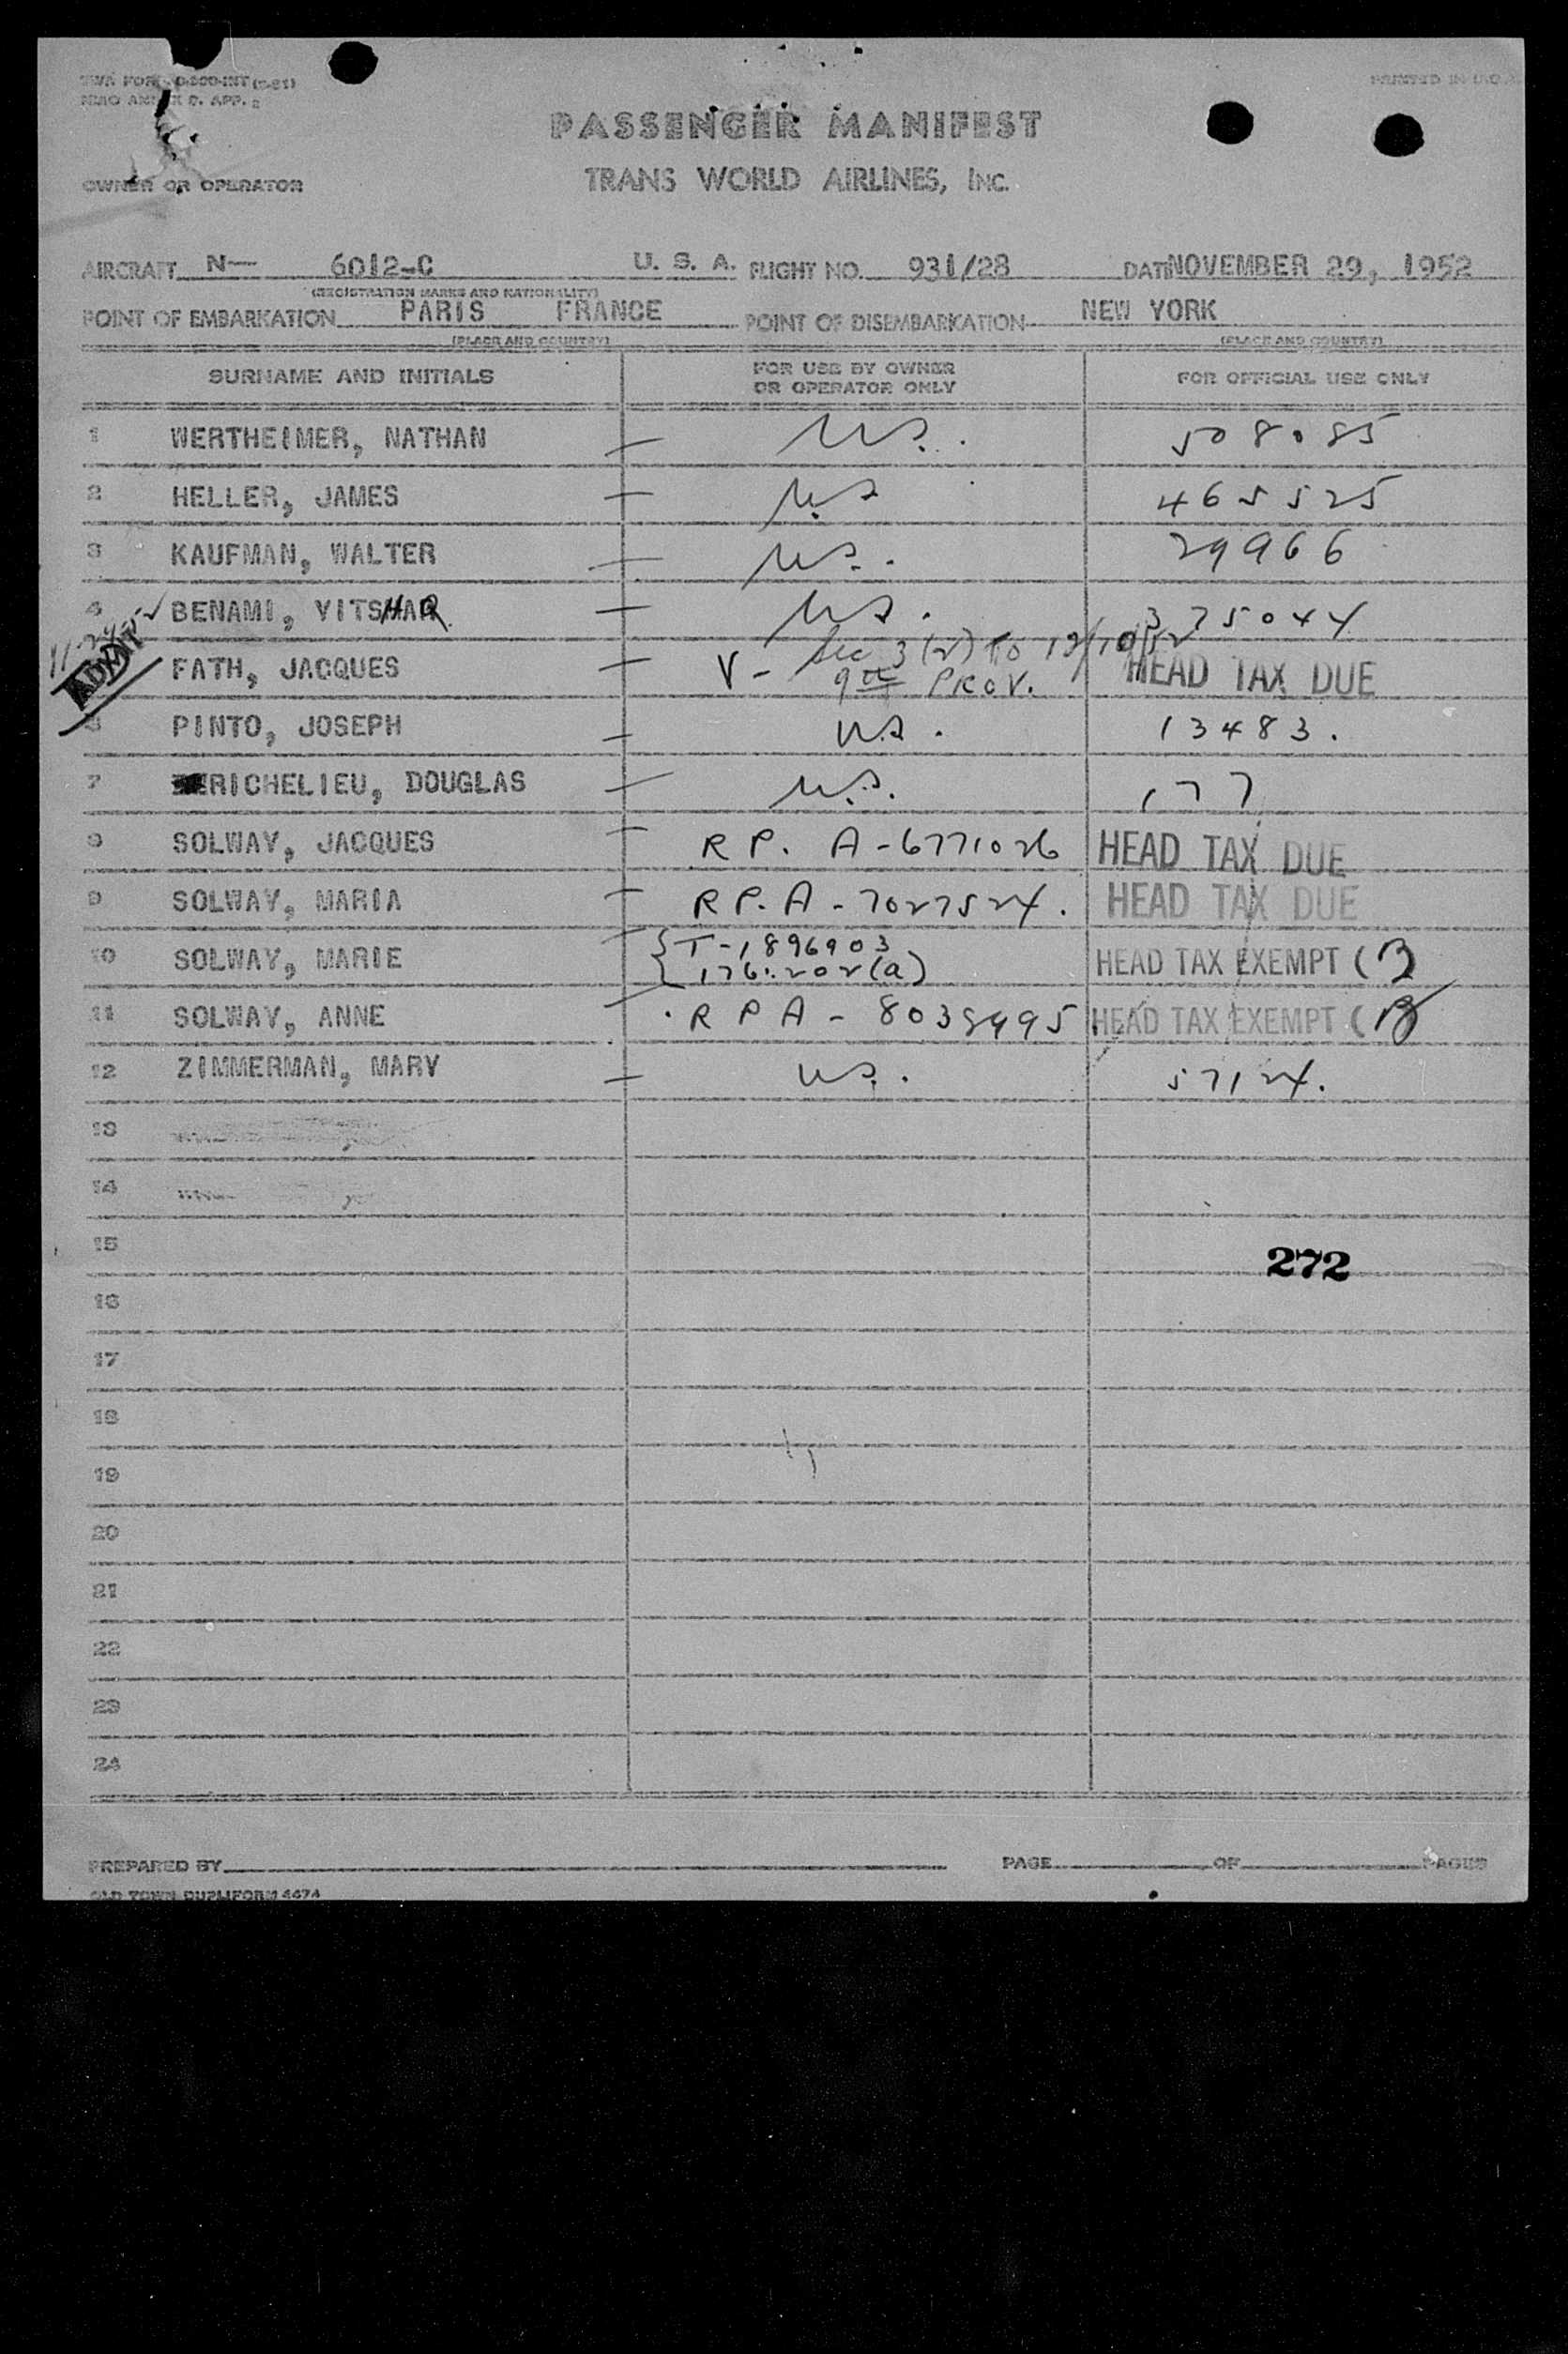 OWNER OR OPERATOR
PRINTED IN U.S.
PASSENGER MANIFEST
TRANS WORLD AIRLINES, INC.
AIRCRAFT N— 6012-C U. S. A. FLIGHT NO. 931/28 DATE NOVEMBER 29, 1952
(REGISTRATION MARKS AND NATIONALITY)
POINT OF EMBARKATION PARIS FRANCE POINT OF DISEMBARKATION NEW YORK
(PLACE AND COUNTRY) (PLACE AND COUNTRY)
SURNAME AND INITIALS FOR USE BY OWNER OR OPERATOR ONLY FOR OFFICIAL USE ONLY
1 WERTHEIMER, NATHAN — U.S. 508085
2 HELLER, JAMES — U.S. 465525
3 KAUFMAN, WALTER — U.S. 29966
4 BENAMI, YITSHAR — U.S. 375044
ADMIT FATH, JACQUES — V - Sec 3(2) to 12/10/52 HEAD TAX DUE
9th PROV.
6 PINTO, JOSEPH — U.S. 13483.
7 RICHELIEU, DOUGLAS — U.S. 177
8 SOLWAY, JACQUES — R P. A-6771026 HEAD TAX DUE
9 SOLWAY, MARIA — R P. A - 7027524. HEAD TAX DUE
10 SOLWAY, MARIE — T-1896903 HEAD TAX EXEMPT (
176.202(a)
11 SOLWAY, ANNE — R P A - 8038995 HEAD TAX EXEMPT (
12 ZIMMERMAN, MARY — U.S. 57124.
13
14
15
272
16
17
18
19
20
21
22
23
24
PREPARED BY PAGE OF PAGES
OLD TOWN DUPLIFORM 4474